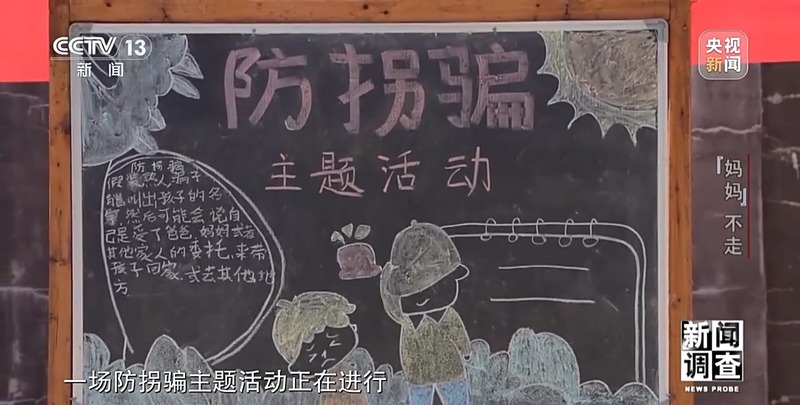 CCTV 13
新闻
央视
新闻
防拐骗
主题活动
防拐骗
假装熟人骗子
能叫出孩子的名
字,然后可能会说自
己是受了爸爸、妈妈或者
其他家人的委托,来带
孩子回家,或去其他地
方
『妈妈』不走
新闻
调查
NEWS PROBE
一场防拐骗主题活动正在进行